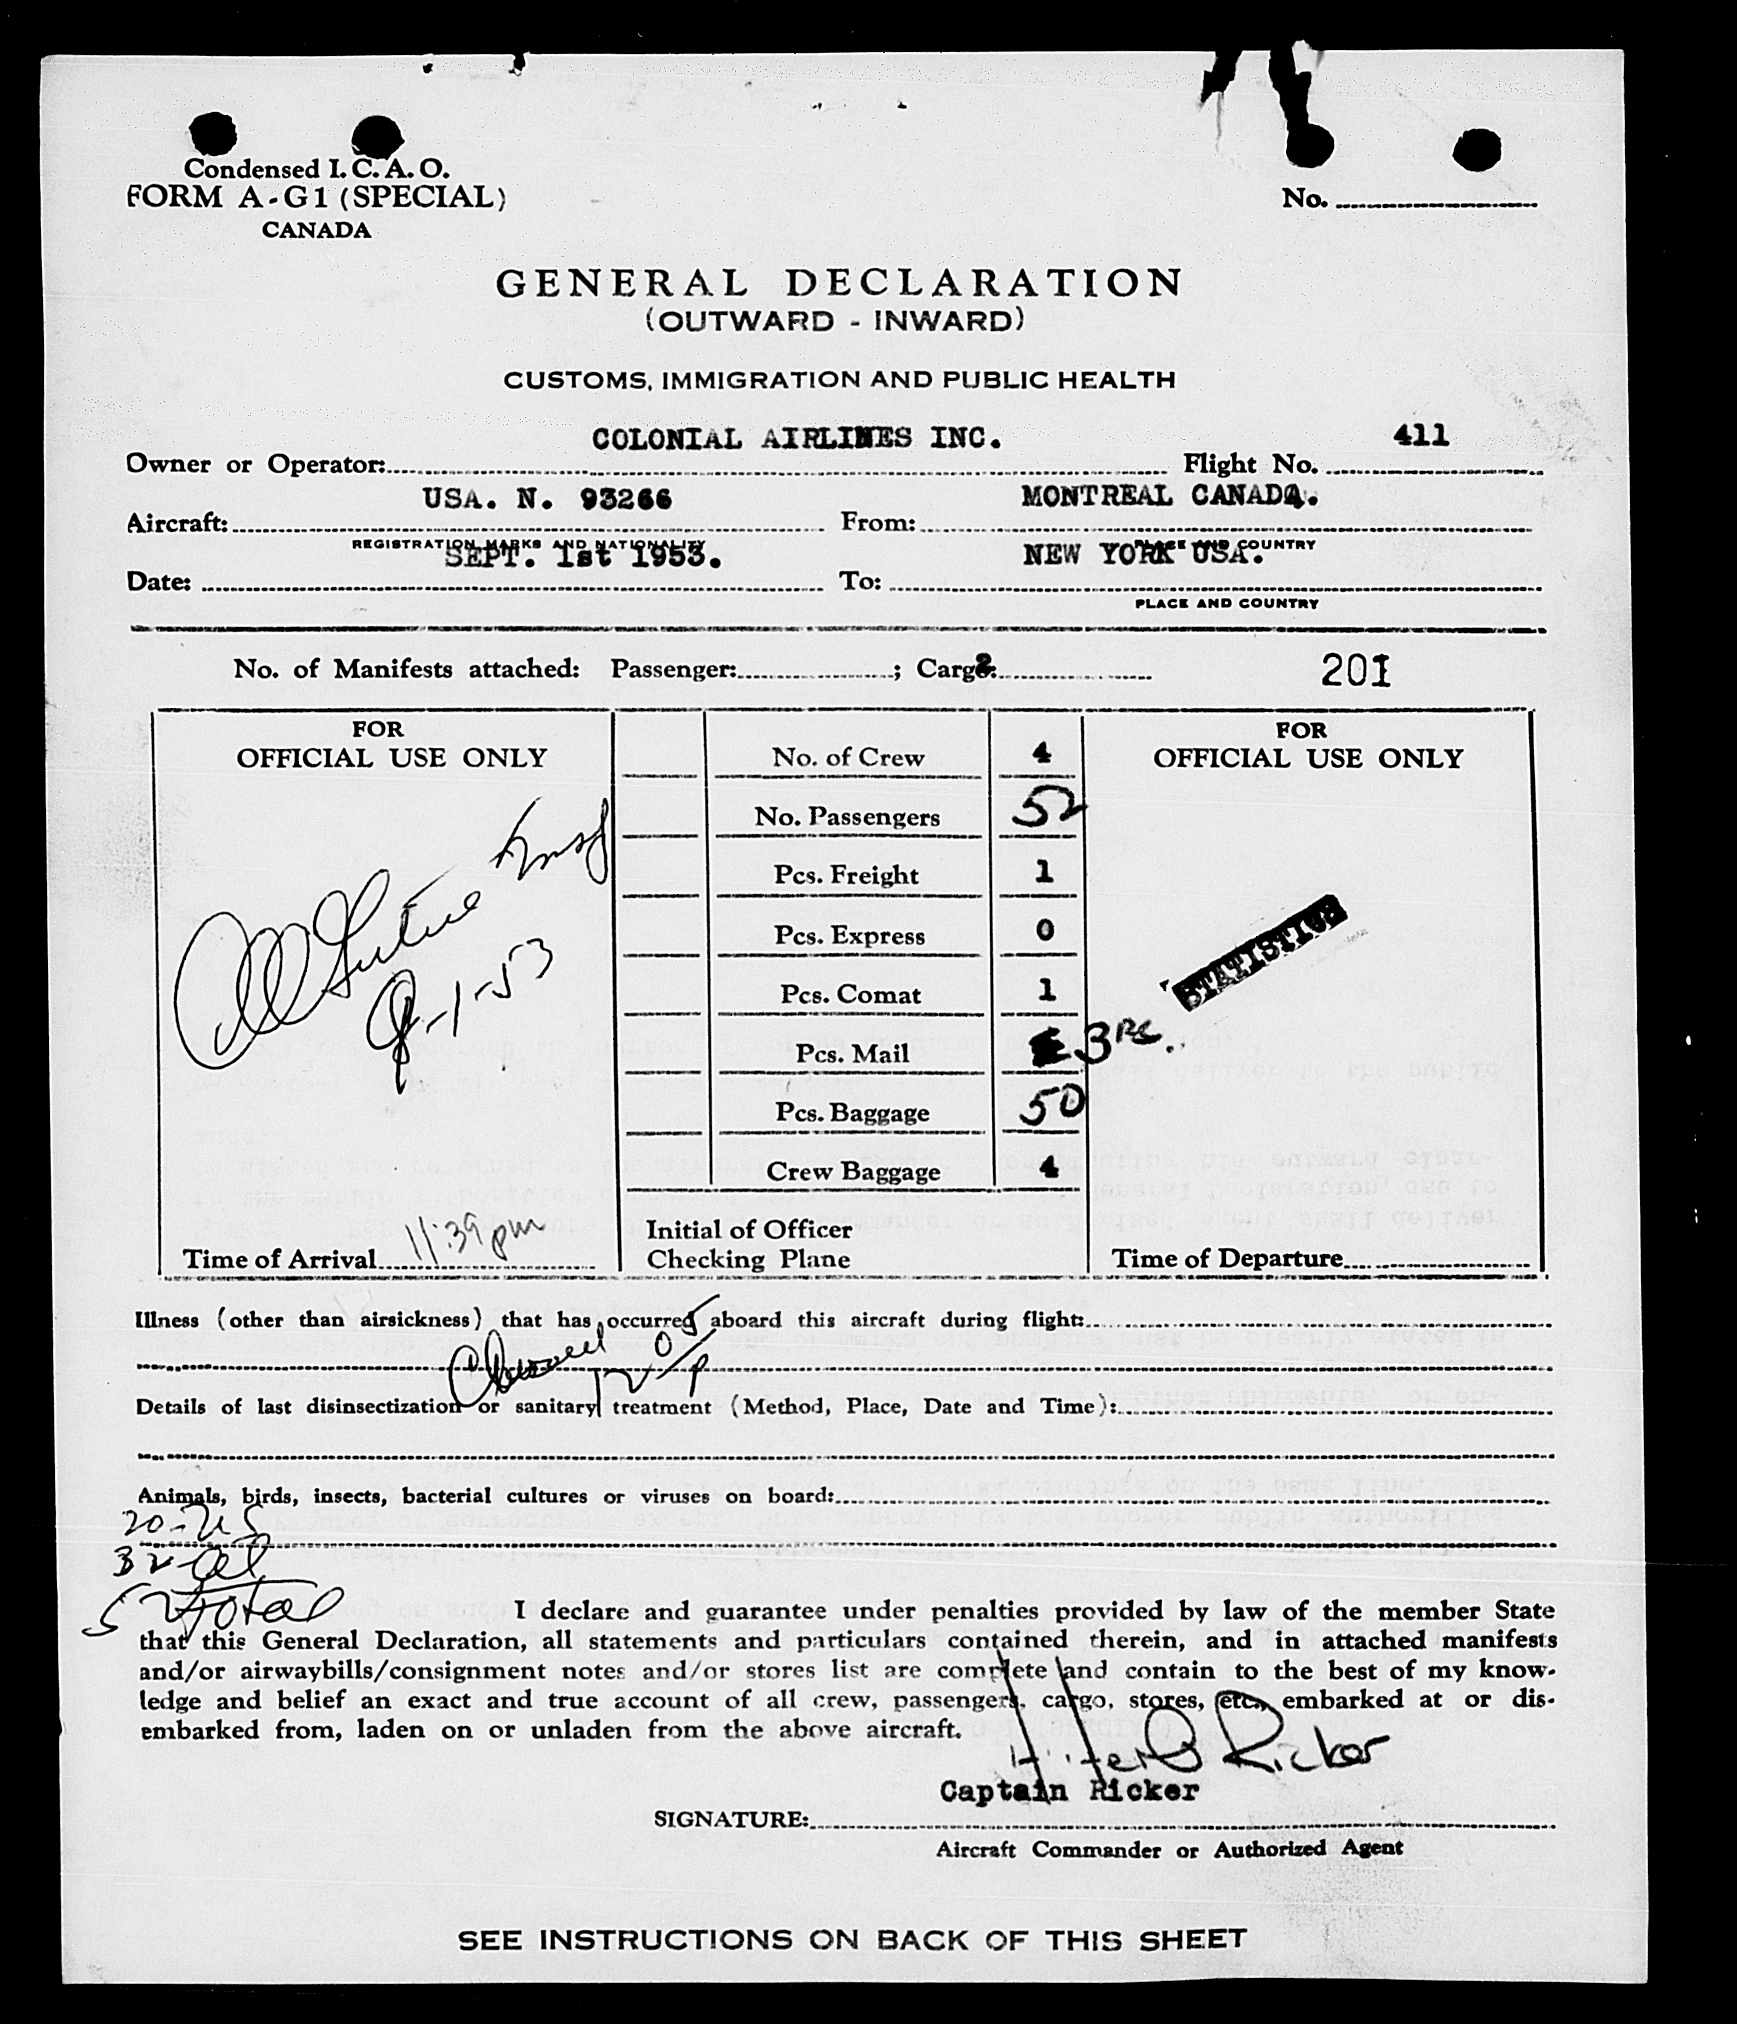 Condensed I.C.A.O.
FORM A-G1 (SPECIAL)
CANADA
No.
GENERAL DECLARATION
(OUTWARD - INWARD)
CUSTOMS, IMMIGRATION AND PUBLIC HEALTH
Owner or Operator: COLONIAL AIRLINES INC. Flight No. 411
Aircraft: USA. N. 93266 From: MONTREAL CANADA.
REGISTRATION MARKS AND NATIONALITY PLACE AND COUNTRY
Date: SEPT. 1st 1953. To: NEW YORK USA.
PLACE AND COUNTRY
No. of Manifests attached: Passenger: ; Cargo: 2 201
FOR
OFFICIAL USE ONLY
9-1-53
Time of Arrival 11:39 pm
No. of Crew 4
No. Passengers 52
Pcs. Freight 1
Pcs. Express 0
Pcs. Comat 1
Pcs. Mail 3 Pc.
Pcs. Baggage 50
Crew Baggage 4
Initial of Officer
Checking Plane
FOR
OFFICIAL USE ONLY
STATISTICS
Time of Departure
Illness (other than airsickness) that has occurred aboard this aircraft during flight:
Details of last disinsectization or sanitary treatment (Method, Place, Date and Time):
Animals, birds, insects, bacterial cultures or viruses on board:
20-US
32-Al
52 total
I declare and guarantee under penalties provided by law of the member State
that this General Declaration, all statements and particulars contained therein, and in attached manifests
and/or airwaybills/consignment notes and/or stores list are complete and contain to the best of my know-
ledge and belief an exact and true account of all crew, passengers, cargo, stores, etc., embarked at or dis-
embarked from, laden on or unladen from the above aircraft.
Ricker
Captain Ricker
SIGNATURE:
Aircraft Commander or Authorized Agent
SEE INSTRUCTIONS ON BACK OF THIS SHEET